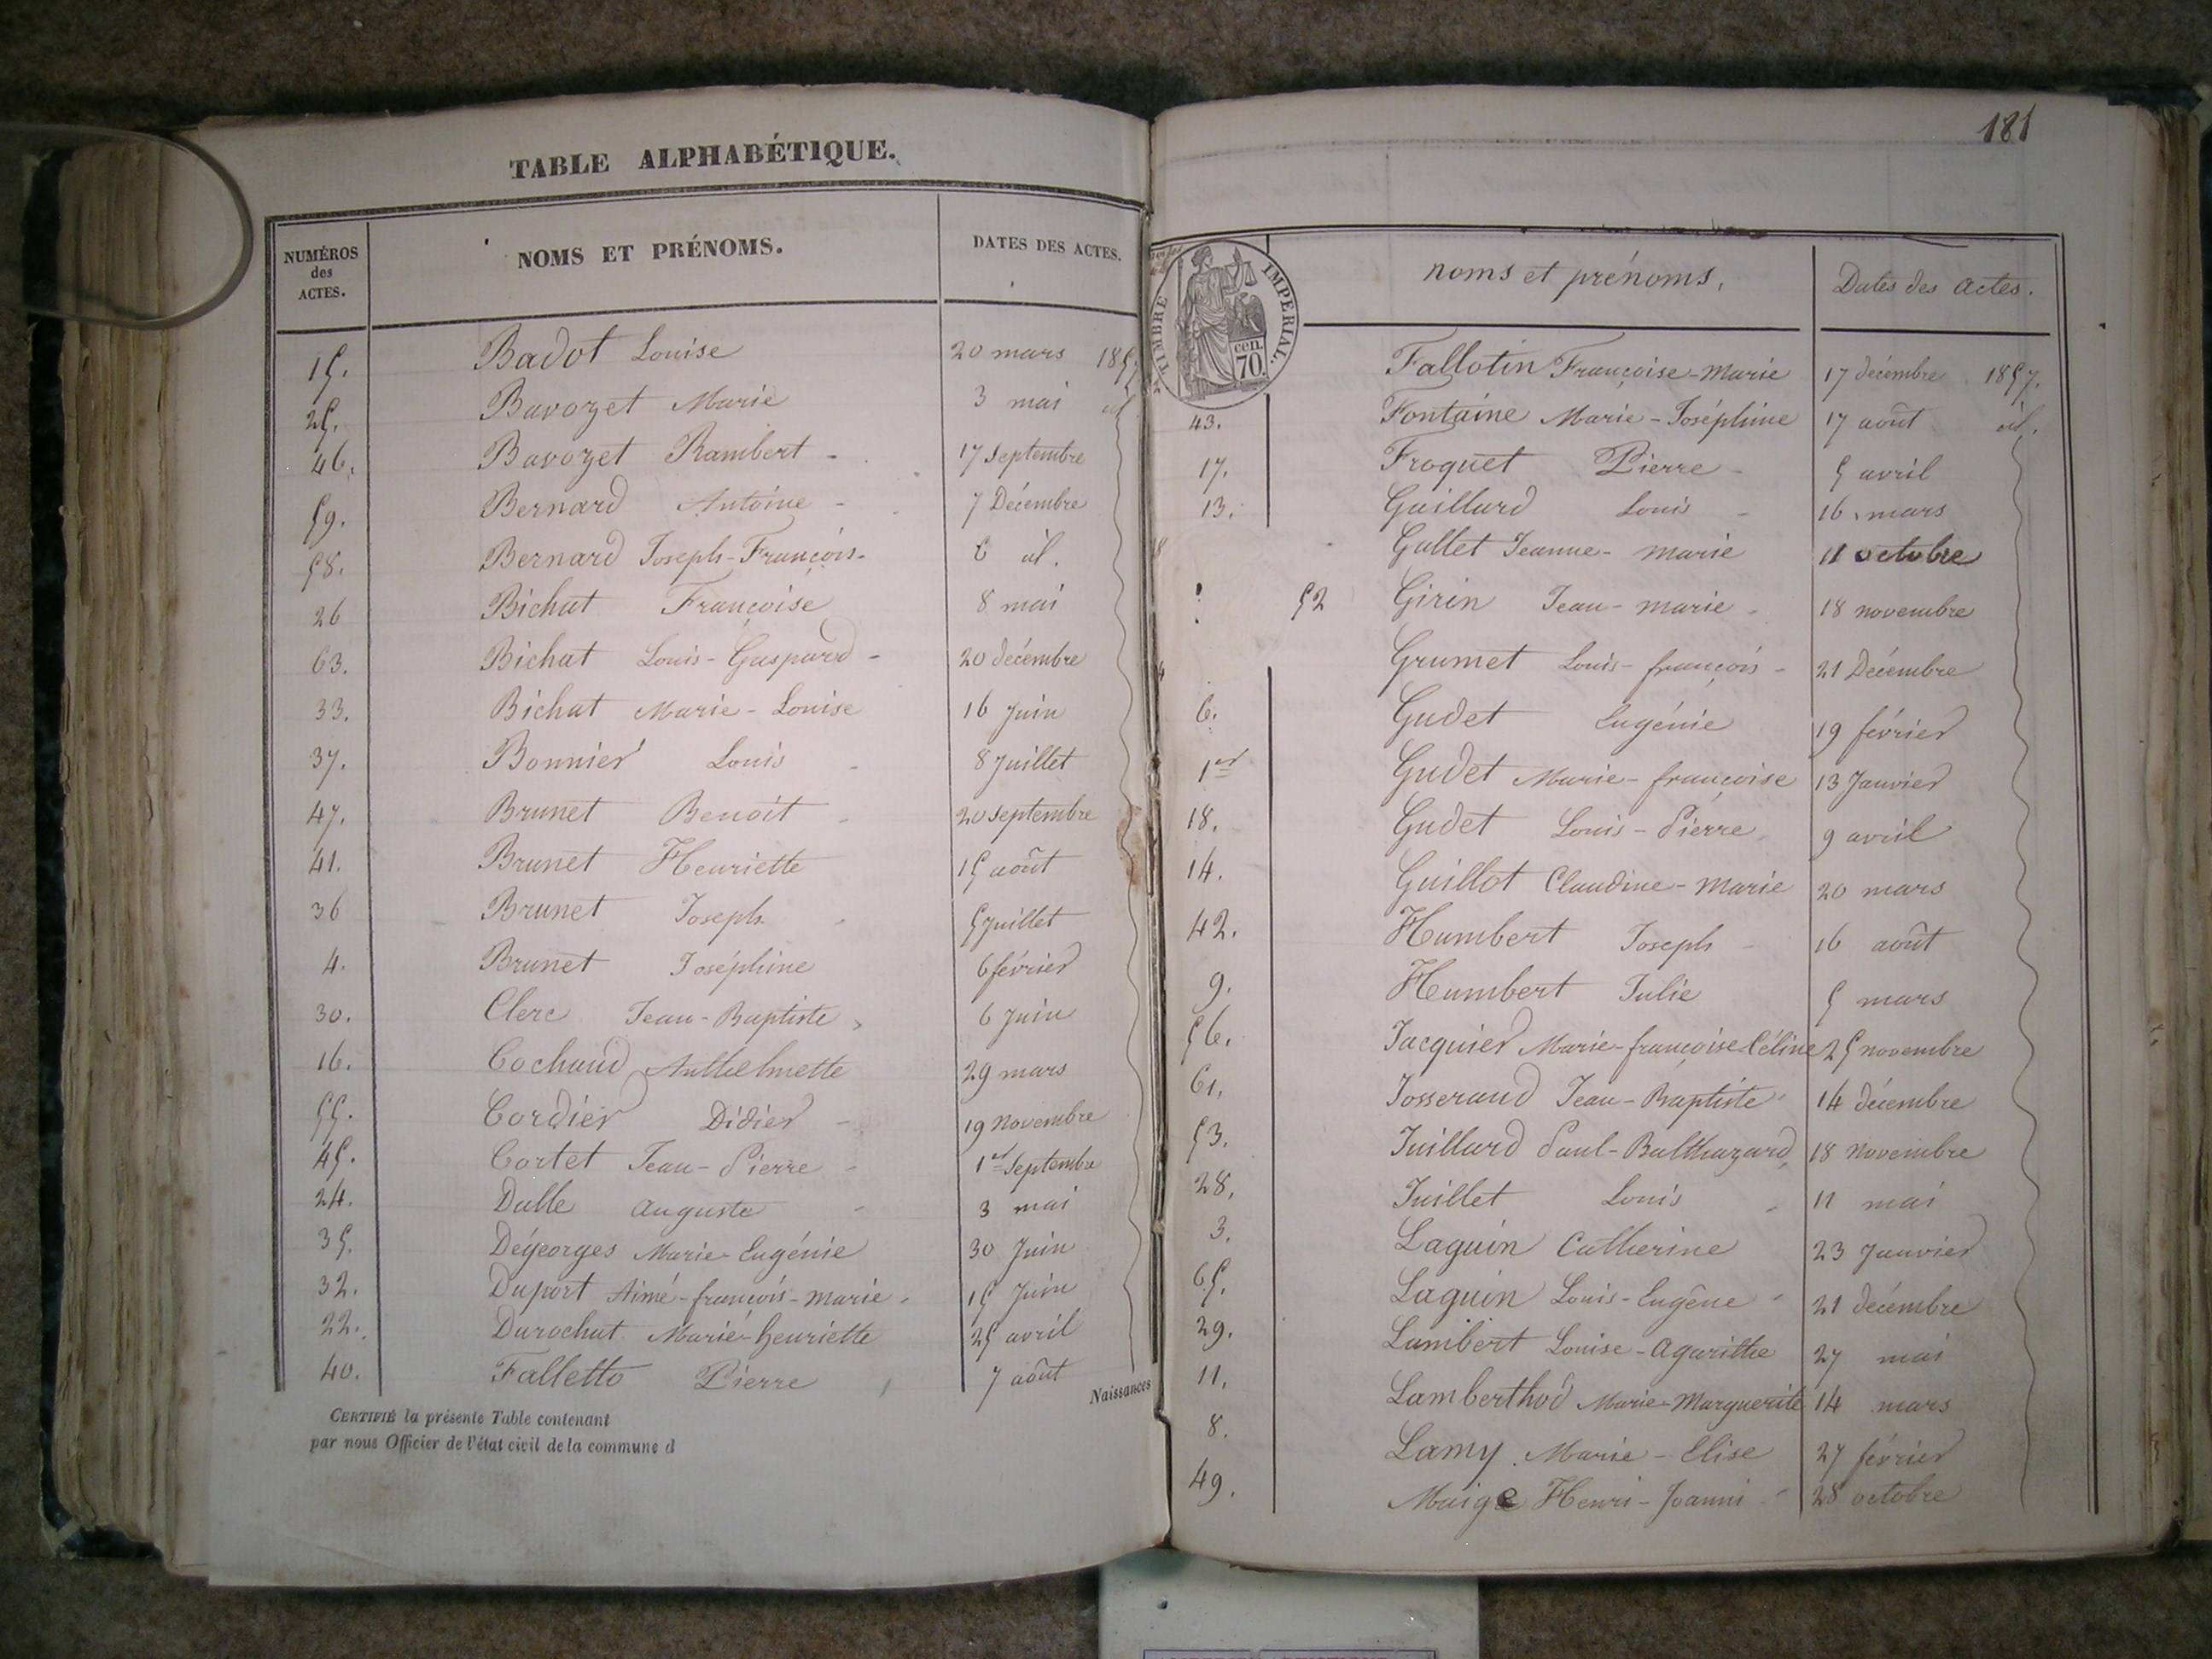 TABLE ALPHABÉTIQUE.
NUMÉROS des ACTES. NOMS ET PRÉNOMS. DATES DES ACTES.
15. Badot Louise 20 mars 1857
25. Bavozet Marie 3 mai id
46. Bavozet Rambert - 17 Septembre
59. Bernard Antoine - 7 Décembre
58. Bernard Joseph-François- 6 id.
26 Bichat Françoise 8 mai
63. Bichat Louis-Gaspard - 20 décembre
33. Bichat Marie-Louise 16 Juin
37. Bonnier Louis - 8 Juillet
47. Brunet Benoit - 20 septembre
41. Brunet Henriette 15 août
36 Brunet Joseph - 5 Juillet
4. Brunet Joséphine 6 février
30. Clerc Jean-Baptiste 6 Juin
16. Cochaud Anthelmette 29 mars
55. Cordier Didier - 19 Novembre
45. Cortet Jean-Pierre - 1er Septembre
24. Dalle Auguste - 3 mai
35. Dégeorges Marie-Eugénie 30 Juin
32. Duport Aimé-françois-marie - 15 Juin
22. Durochat Marie-henriette 25 avril
40. Falletto Pierre 7 août
Naissances
CERTIFIÉ la présente Table contenant
par nous Officier de l'état civil de la commune d
181
TIMBRE IMPERIAL.
cen.
70.
noms et prénoms. Dates des actes.
Fallotin Françoise-Marie 17 décembre 1857.
43. Fontaine Marie-Joséphine 17 août id.
17. Froquet Pierre - 5 avril
13. Gaillard Louis - 16 mars
Gallet Jeanne-marie 11 octobre
52 Girin Jean-marie - 18 novembre
Grumet Louis-françois - 21 Décembre
6. Gudet Eugénie 19 février
1er Gudet Marie-françoise 13 Janvier
18. Gudet Louis-Pierre 9 avril
14. Guillot Claudine-Marie 20 mars
42. Humbert Joseph - 16 août
9. Humbert Julie 5 mars
56. Jacquier Marie-françoise-Céline 25 novembre
61. Josserand Jean-Baptiste 14 décembre
53. Juillard Paul-Balthazard, 18 Novembre
28. Juillet Louis - 11 mai
3. Laguin Catherine 23 Janvier
65. Laguin Louis-Eugêne 21 décembre
29. Lambert Louise-Agarithe 27 mai
11. Lamberthod Marie-Marguerite 14 mars
8. Lamy Marie-Elise 27 février
49. Maige Henri-Joanni 28 octobre